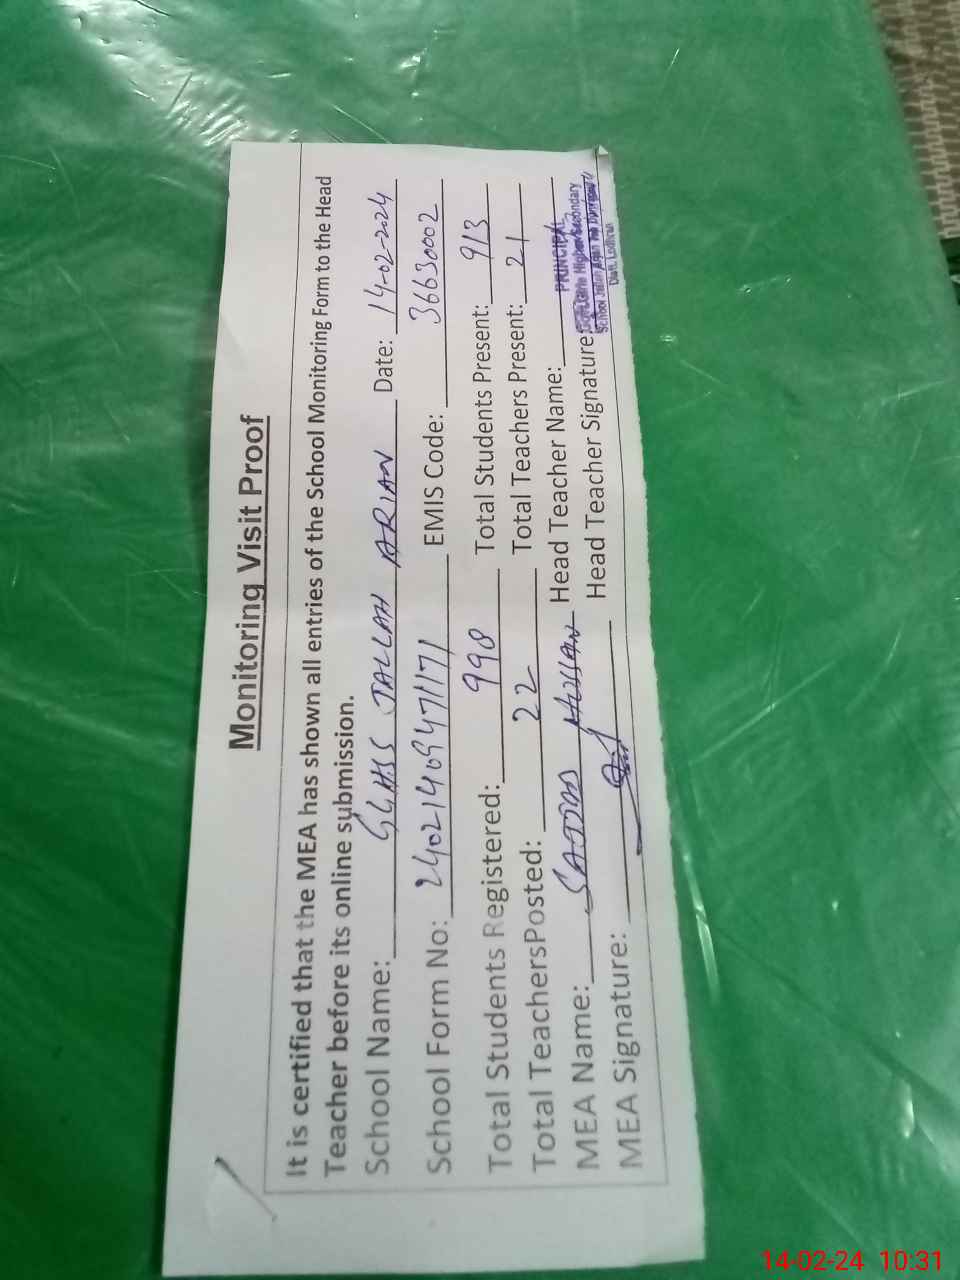 Monitoring Visit Proof
It is certified that the MEA has shown all entries of the School Monitoring Form to the Head
Teacher before its online submission.
School Name: GHSS JALLAH ARIAN Date: 14-02-2024
School Form No: 2402140947171 EMIS Code: 36630002
Total Students Registered: 998 Total Students Present: 913
Total TeachersPosted: 22 Total Teachers Present: 21
MEA Name: SAJJAD HUSSAIN Head Teacher Name:
MEA Signature: Head Teacher Signature:
PRINCIPAL
Higher Secondary
School
Distt. Lodhran
14-02-24 10:31